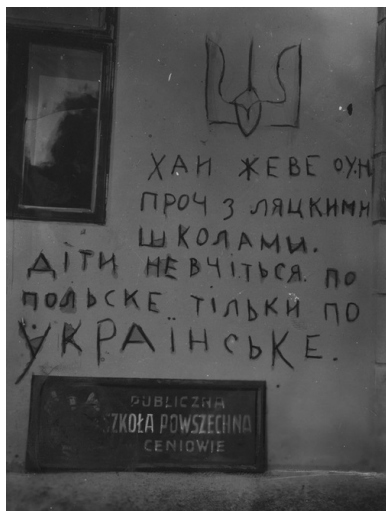 ХАЙ ЖЕВЕ ОУН
ПРОЧ З ЛЯЦКИМИ
ШКОЛАМИ.
ДІТИ НЕ ВЧІТЬСЯ ПО
ПОЛЬСКЕ ТІЛЬКИ ПО
УКРАІНСЬКЕ.
PUBLICZNA
SZKOŁA POWSZECHNA
CENIOWIE